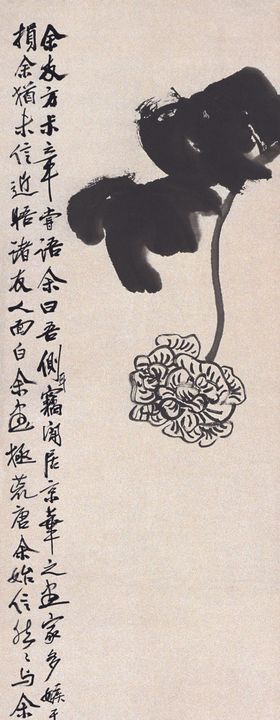 余友方尗章嘗語余曰吾側耳竊聞居京華之畫家多嫉于
損余猶未信近晤諸友人面白余畫極荒唐余始信然〻与余